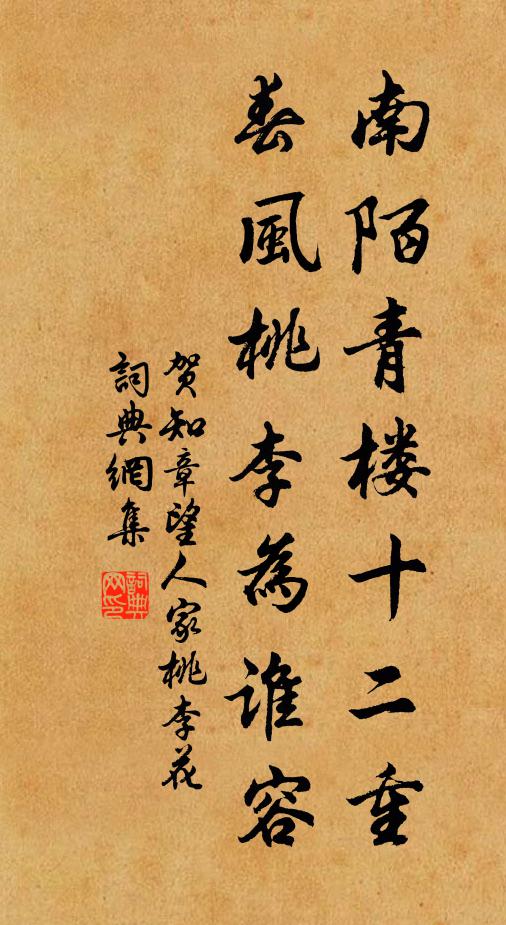 南陌青楼十二重
春風桃李為谁容
賀知章望人家桃李花
詞典網集
詞典网印